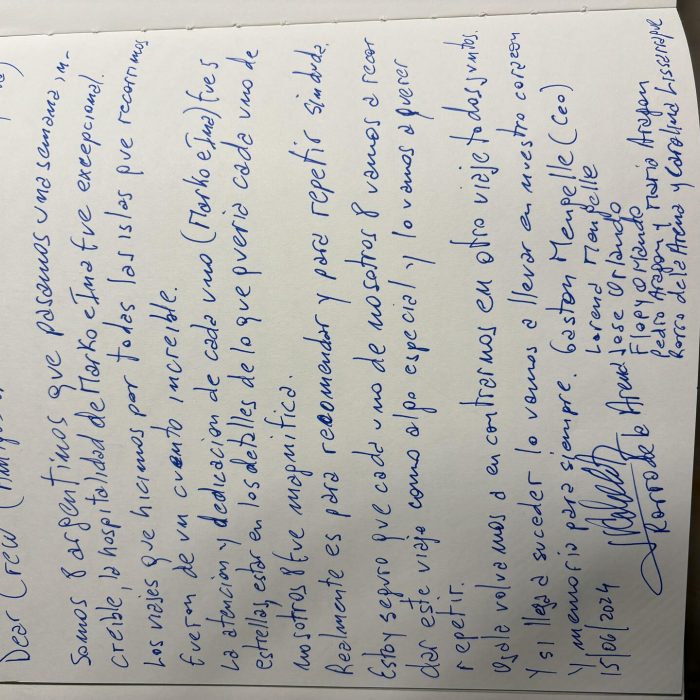 Dear Crew (Amig
Somos 8 argentinos que pasamos una semana in-
creible, la hospitalidad de Marko e Ina fue excepcional.
Los viajes que hicimos por todas las islas que recorrimos
fueron de un cuento increible.
La atencion y dedicacion de cada uno (Marko e Ina) fue 5
estrellas, estar en los detalles de lo que queria cada uno de
nosotros 8 fue magnifica.
Realmente es para recomendar y para repetir sin duda.
Estoy seguro que cada uno de nosotros 8 vamos a recor
dar este viaje como algo especial y lo vamos a querer
repetir.
Ojala volvamos a encontrarnos en otro viaje todos juntos.
Y si llega a suceder lo vamos a llevar en nuestro corazon
Y memorio para siempre. Gaston Mengelle (Ceo)
Lorena Mengelle
15/06/2024 Jose Orlando
Flopy Orlando
Pedro Aragon y Maria Aragon
Rorro de la Arena Rorro de la Arena y Carolina Lissarrague